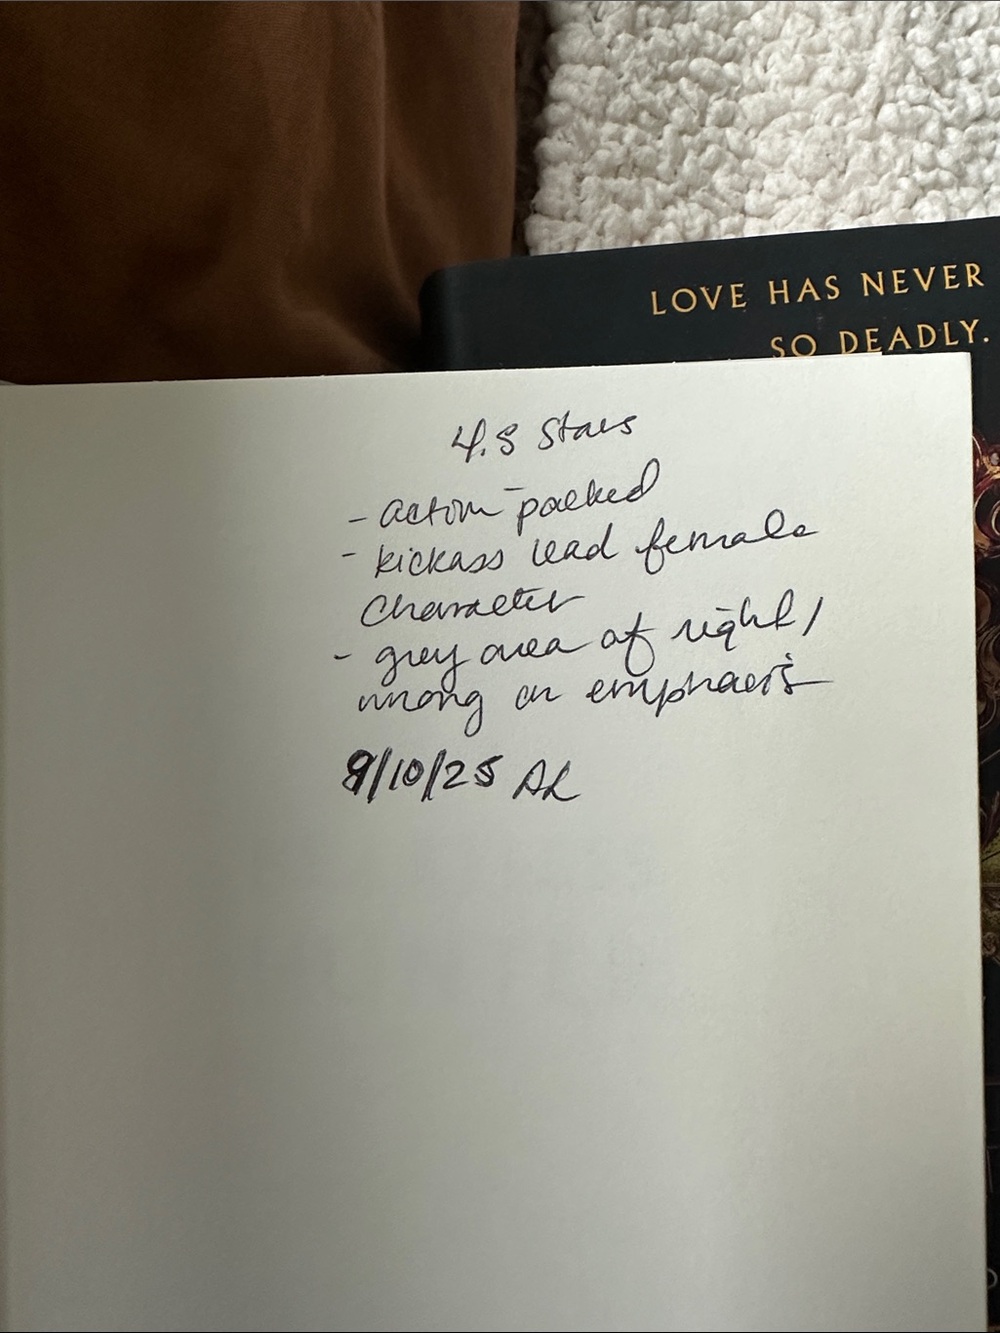 LOVE HAS NEVER
SO DEADLY.
4.5 Stars
- action-packed
- kickass lead female
character
- grey area of right/
wrong an emphasis
9/10/25 AL